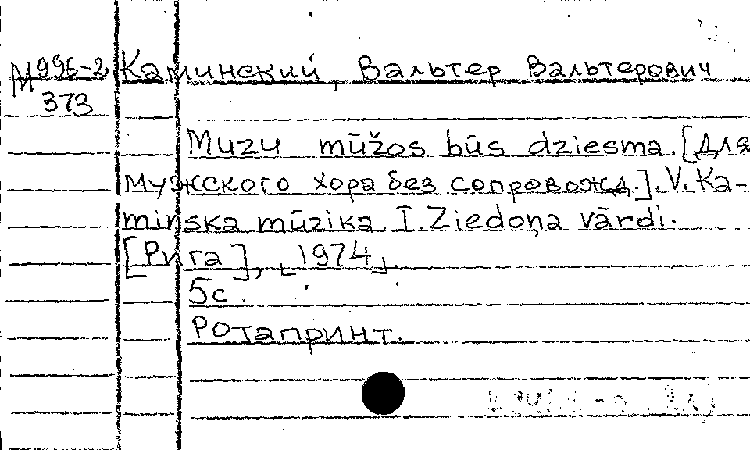 М996-2 Каминский, Вальтер Вальтерович
373
Muzu mūžos būs dziesma. [Для
мужского хора без сопровожд.]. V. Ka-
minska mūzika I. Ziedoņa vārdi.
[Рига], 1974
5с.
Ротапринт.